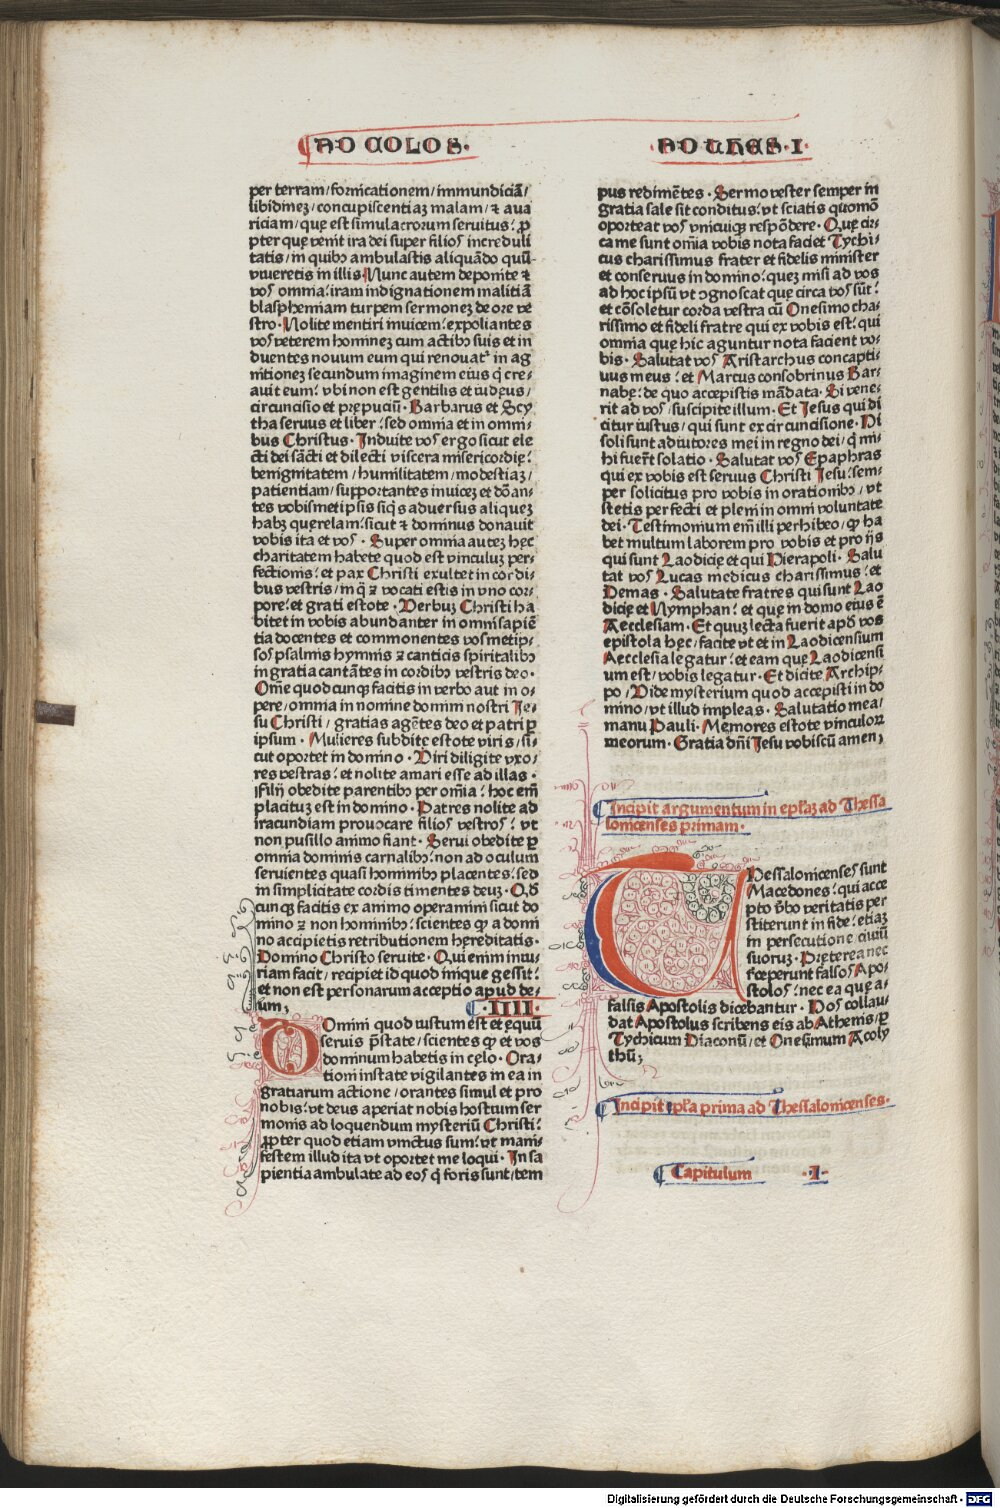 AD COLOS·
per terram/fornicationem/immundiciā/
libidinez/concupiscentiaz malam/⁊ aua
riciam/quę est simulacrorum seruitus: ꝓ
pter quę venit ira dei super filios increduli
tatis/in quibꝫ ambulastis aliquādo quū
viueretis in illis Nunc autem deponite ⁊
vos omnia: iram indignationem malitiā
blasphemiam turpem sermonez de ore ve
stro· Nolite mentiri inuicem: expoliantes
vos veterem hominez cum actibꝫ suis et in
duentes nouum eum qui renouat᷑ in ag
nitionez secundum imaginem eius q̇ cre⸗
auit eum: vbi non est gentilis et iudęus/
circuncisio et prępuciū· Barbarus et Scy
tha seruus et liber: sed omnia et in omni⸗
bus Christus· Induite vos ergo sicut ele
cti dei sācti et dilecti viscera misericordię:
benignitatem/humilitatem/modestiaz/
patientiam/supportantes inuicez et dōan⸗
tes vobismetipsis siq̇s aduersus aliquez
habꝫ querelam: sicut ⁊ dominus donauit
vobis ita et vos· Super omnia autez hęc
charitatem habete quod est vinculuz per⸗
fectionis: et pax Christi exultet in cordi⸗
bus vestris/in q̄ ⁊ vocati estis in vno cor⸗
pore: et grati estote· Verbuz Christi ha
bitet in vobis abundanter in omni sapiē
tia docentes et commonentes vosmetip⸗
sos psalmis hymnis ⁊ canticis spiritalibꝫ
in gratia cantātes in cordibꝫ vestris deo·
Om̄e quodcunqꝫ facitis in verbo aut in o⸗
pere/omnia in nomine domini nostri Ie⸗
su Christi/gratias agētes deo et patri ꝑ
ipsum· Mulieres subditę estote viris/si⸗
cut oportet in domino· Viri diligite vxo⸗
res vestras: et nolite amari esse ad illas·
Filij obedite parentibꝫ per om̄ia: hoc em̄
placituz est in domino· Patres nolite ad
iracundiam prouocare filios vestros: vt
non pusillo animo fiant· Serui obedite ꝑ
omnia dominis carnalibꝫ: non ad oculum
seruientes quasi hominibꝫ placentes: sed
in simplicitate cordis timentes deuz· Qd̄
cunqꝫ facitis ex animo operamini sicut do
mino ⁊ non hominibꝫ: scientes ꝙ a domi
no accipietis retributionem hęreditatis·
Domino Christo seruite· Qui enim iniu⸗
riam facit/recipiet id quod inique gessit:
et non est personarum acceptio apud de⸗
um; ·IIII·
DOmini quod iustum est et ęquū
seruis p̄state/scientes ꝙ et vos
dominum habetis in cęlo· Ora⸗
tioni instate vigilantes in ea in
gratiarum actione/orantes simul et pro
nobis: vt deus aperiat nobis hostium ser
monis ad loquendum mysteriū Christi:
ꝓpter quod etiam vinctus sum: vt mani⸗
festem illud ita vt oportet me loqui· In sa
pientia ambulate ad eos q̇ foris sunt/tem
AD THES·I·
pus redimētes· Sermo vester semper in
gratia sale sit conditus: vt sciatis quomō
oporteat vos vnicuiqꝫ respōdere· Quę cir⸗
ca me sunt om̄ia vobis nota faciet Tychi⸗
cus charissimus frater et fidelis minister
et conseruus in domino: quez misi ad vos
ad hoc ipsū vt ꝯgnoscat quę circa vos sūt:
et cōsoletur corda vestra cū Onesimo cha⸗
rissimo et fideli fratre qui ex vobis est: qui
omnia quę hic aguntur nota facient vo⸗
bis· Salutat vos Aristarchus concapti⸗
uus meus: et Marcus consobrinus Bar⸗
nabę: de quo accepistis mādata· Si vene⸗
rit ad vos/suscipite illum· Et Iesus qui di
citur iustus/qui sunt ex circuncisione· Hi
soli sunt adiutores mei in regno dei/q̇ mi⸗
hi fuer̄t solatio· Salutat vos Epaphras
qui ex vobis est seruus Christi Iesu: sem⸗
per solicitus pro vobis in orationibꝫ/vt
stetis perfecti et pleni in omni voluntate
dei· Testimonium em̄ illi perhibeo/ꝙ ha
bet multum laborem pro vobis et pro ijs
qui sunt Laodicię et qui Hierapoli· Salu
tat vos Lucas medicus charissimus: et
Demas· Salutate fratres qui sunt Lao
dicię et Nymphan: et quę in domo eius ē
Aecclesiam· Et quuz lecta fuerit apd̄ vos
epistola hęc/facite vt et in Laodicensium
Aecclesia legatur: et eam quę Laodicensi
um est/vobis legatur· Et dicite Archip⸗
po/Vide mysterium quod accepisti in do
mino/vt illud impleas· Salutatio mea/
manu Pauli· Memores estote vinculoꝝ
meorum· Gratia dn̄i Iesu vobiscū amen;
Incipit argumentum in epl̄az ad Thessa
lonicenses primam·
THessalonicenses sunt
Macedones: qui acce
pto v̄bo veritatis per
stiterunt in fide: etiaz
in persecutione ciuiū
suoruz· Pręterea nec
rœperunt falsos Apo⸗
stolos: nec ea quę a⸗
falsis Apostolis dicebantur· Hos collau⸗
dat Apostolus scribens eis ab Athenis/ꝑ
Tychicum Diaconū/et Onesimum Acoly
thū;
Incipit epl̄a prima ad Thessalonicenses·
Capitulum ·I·
Digitalisierung gefördert durch die Deutsche Forschungsgemeinschaft · DFG